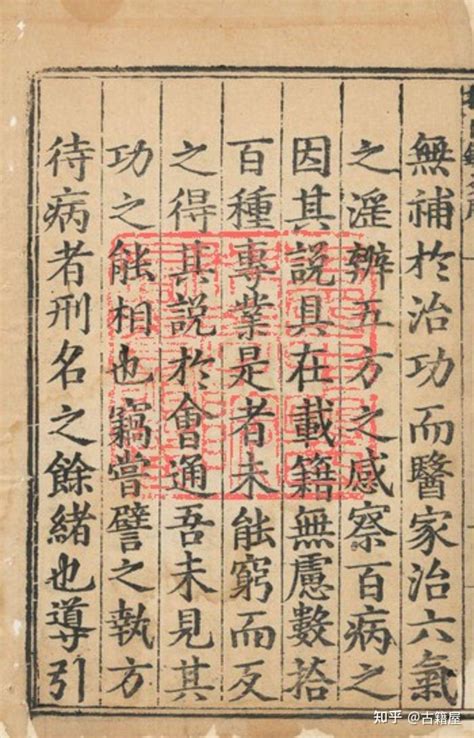 無補於治功而醫家治六氣
之淫辨五方之感察百病之
因其說具在載籍無慮數拾
百種專業是者未能窮而反
之得其說於會通吾未見其
功之能相也竊嘗譬之執方
待病者刑名之餘緒也導引
知乎 @古籍屋